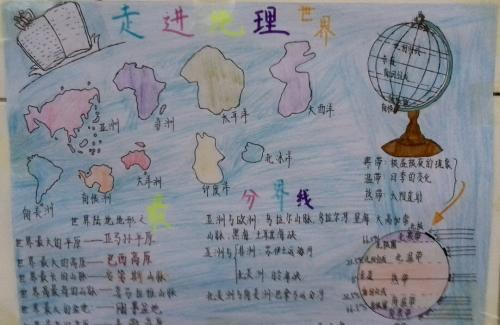 走进地理世界
亚洲
非洲
太平洋
大西洋
南美洲
南极洲
大洋洲
印度洋
北冰洋
世界陆地地形之最
世界最大的平原——亚马孙平原
世界最大的高原——巴西高原
世界最长的山脉——安第斯山脉
世界最高的山脉——喜马拉雅山脉
世界最大的盆地——刚果盆地
分界线
亚洲与欧洲:乌拉尔山脉,乌拉尔河,里海,大高加索
山脉,黑海,土耳其海峡
亚洲与非洲:苏伊士运河
北美洲与南美洲:巴拿马运河
寒带:极昼极夜的现象
温带:四季的变化
热带:太阳直射
北寒带
北温带
热带
南温带
南寒带